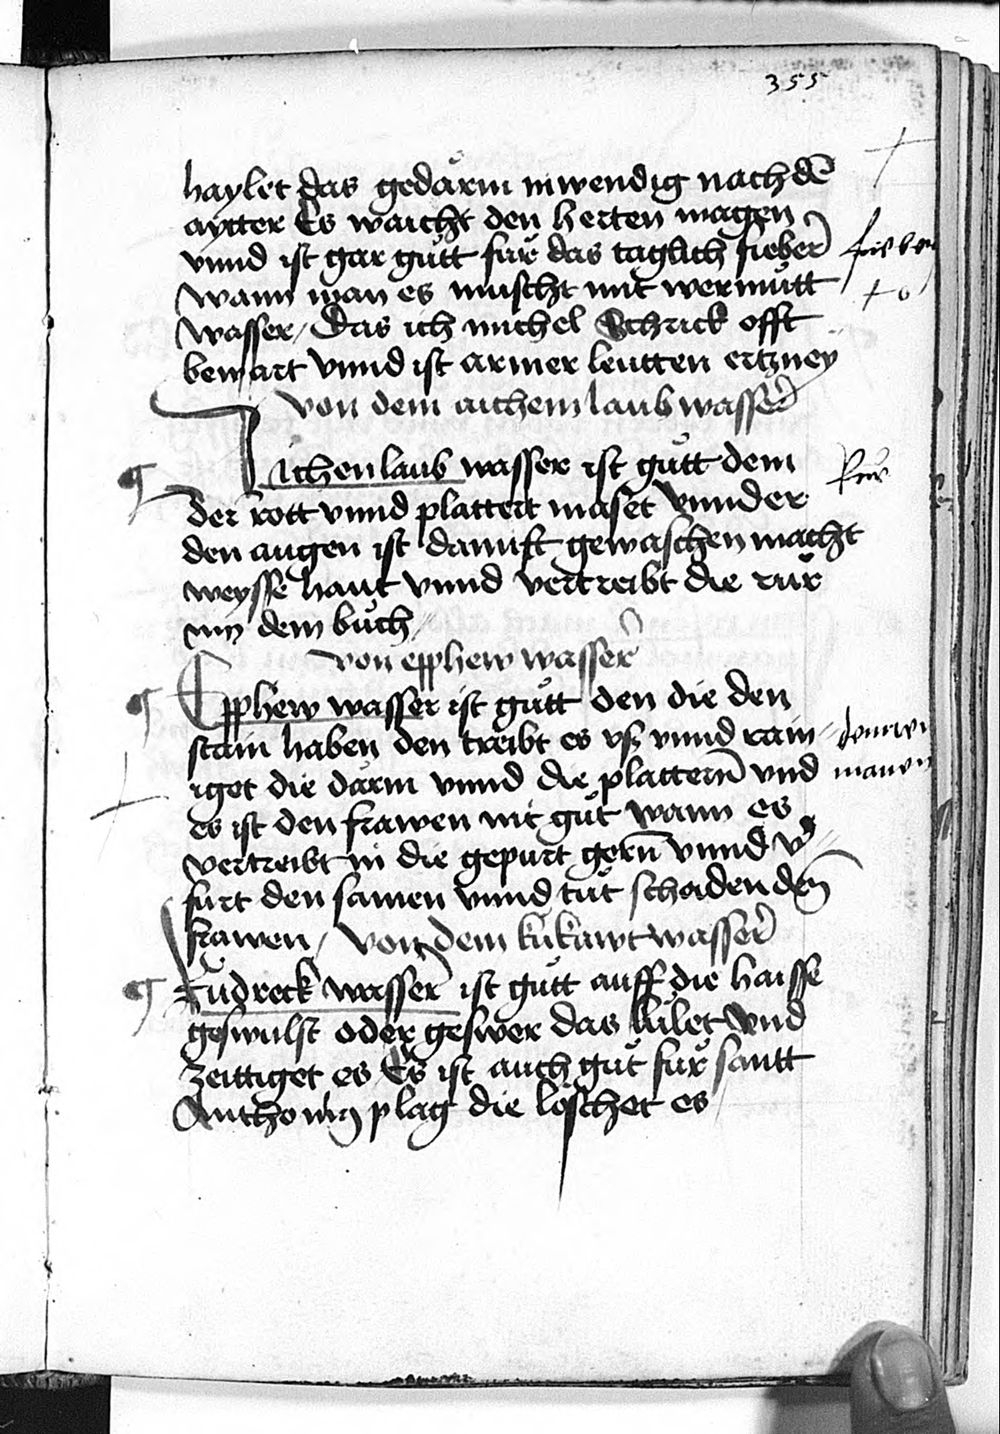 355
haylet das gedärm inwendig nach dē
aytter Es waicht den herten magen
vnnd ist gar gůtt für das täglich fieber
wann man es mischt mit wermůtt
wasser / Das ich michel Schrick offt
bewart vnnd ist armer leutten ertzney
von dem aichem laub wasser
Aichenlaub wasser ist gůtt dem
der rott vnnd plattert maset vnnder
den augen ist damit gewaschen macht
weysse haut vnnd vertreibt die růr
inn dem bůch
von epphew wasser
Epphew wasser ist gůtt den die den
stain haben den treibt es vß vnnd rain
iget die därm vnnd die plattern vnd
es ist den frawen nit gůt wann es
vertreibt in die gepurt gern vnnd v
fürt den samen vnnd tůt schaden den
frawen / von dem kükawt wasser
Küdreck wasser ist gůtt auff die haisse
geswulst oder geswer das kület vnd
zeittiget es Es ist auch gůt für santt
Anthonin plag die löschet es